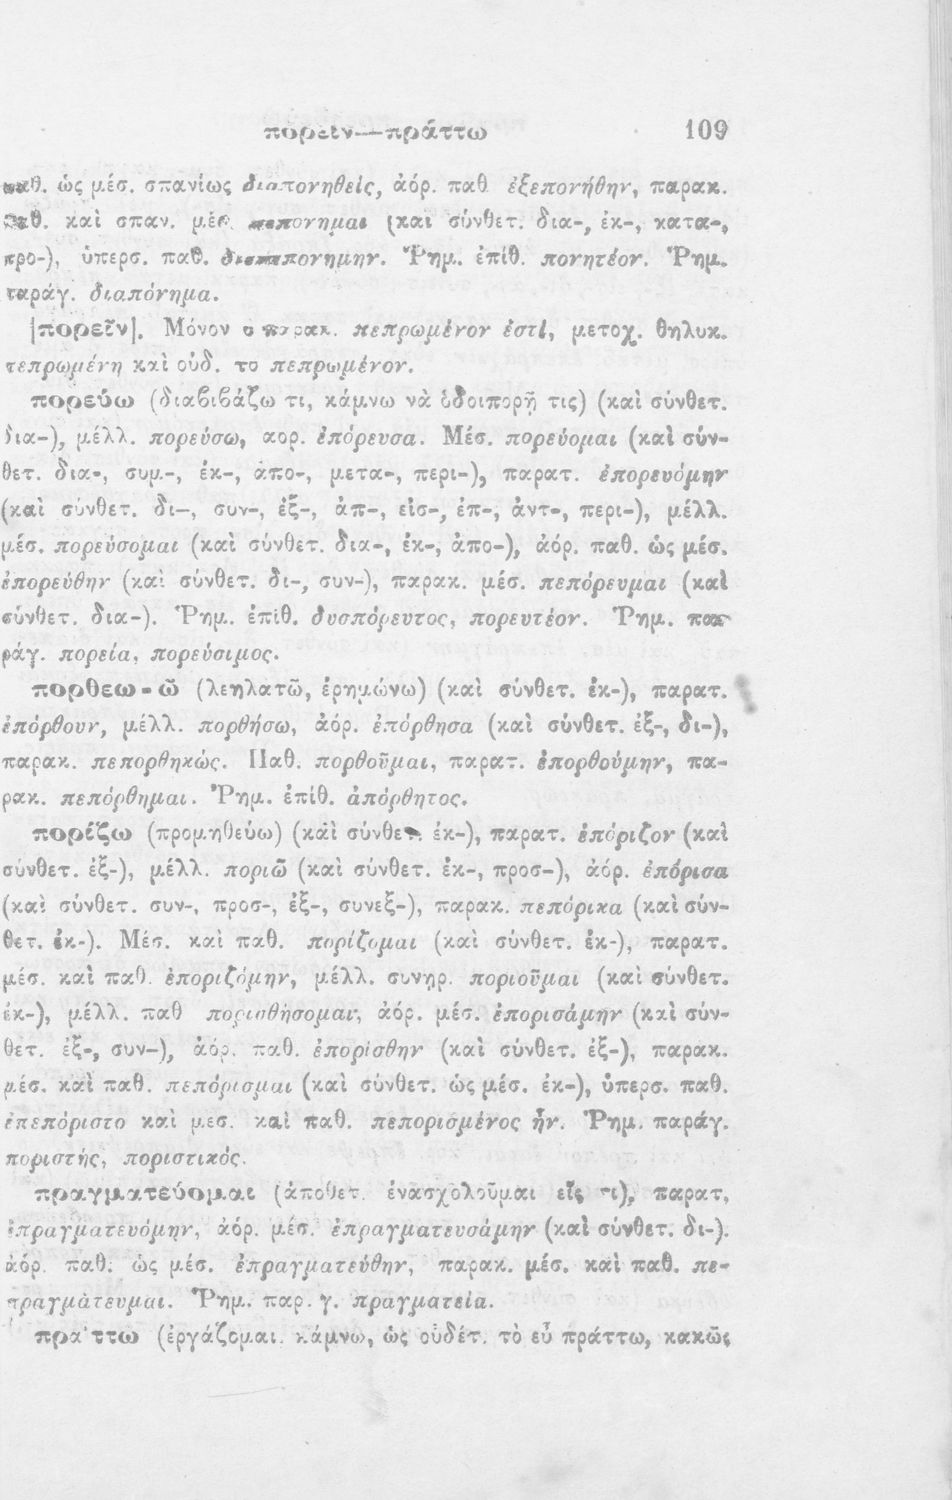 πορεῖν—πράττω 109
παθ. ὡς μέσ. σπανίως διαπονηθείς, ἀόρ. παθ ἐξεπονήθην, παρακ.
παθ. καὶ σπαν. μέσ. πεπόνημαι (και σύνθετ. δια-, ἐκ-, κατα-,
προ-), ὑπερσ. παθ. διεπεπονήμην. Ῥημ. ἐπίθ. πονητέον. Ῥημ.
παράγ. διαπόνημα.
|πορεῖν|. Μόνον ο παρακ. πεπρωμένον ἐστί, μετοχ. θηλυκ.
πεπρωμένη καὶ οὐδ. το πεπρωμένον.
πορεύω (διαβιβάζω τι, κάμνω νὰ ὁδοιπορῇ τις) (καὶ σύνθετ.
δια-), μέλλ. πορεύσω, αορ. ἐπόρευσα. Μέσ. πορεύομαι (καὶ σύν-
θετ. δια-, συμ.-, ἐκ-, ἀπο-, μετα-, περι-), παρατ. ἐπορευόμην
(καὶ σύνθετ. δι-, συν-, ἐξ-, ἀπ-, εἰσ-, ἐπ-, ἀντ-, περι-), μέλλ.
μέσ. πορεύσομαι (καὶ σύνθετ. δια-, ἐκ-, ἀπο-), ἀόρ. παθ. ὡς μέσ.
ἐπορεύθην (καὶ σύνθετ. δι-, συν-), παρακ. μέσ. πεπόρευμαι (καὶ
σύνθετ. δια-). Ῥημ. ἐπίθ. δυσπόρευτος, πορευτέον. Ῥημ. πα-
ράγ. πορεία, πορεύσιμος.
πορθεω-ῶ (λεηλατῶ, ἐρημώνω) (καὶ σύνθετ. ἐκ-), παρατ.
ἐπόρθουν, μέλλ. πορθήσω, ἀόρ. ἐπόρθησα (καὶ σύνθετ. ἐξ-, δι-),
παρακ. πεπορθηκώς. Παθ. πορθοῦμαι, παρατ. ἐπορθούμην, πα-
ρακ. πεπόρθημαι. Ῥημ. ἐπίθ. ἀπόρθητος.
πορίζω (προμηθεύω) (καὶ σύνθετ. ἐκ-), παρατ. ἐπόριζον (καὶ
σύνθετ. ἐξ-), μέλλ. ποριῶ (καὶ σύνθετ. ἐκ-, προσ-), ἀόρ. ἐπόρισα
(καὶ σύνθετ. συν-, προσ-, ἐξ-, συνεξ-), παρακ. πεπόρικα (καὶ σύν-
θετ. ἐκ-). Μέσ. καὶ παθ. πορίζομαι (καὶ σύνθετ. ἐκ-), παρατ.
μέσ. καὶ παθ. ἐποριζόμην, μέλλ. συνηρ. ποριοῦμαι (καὶ σύνθετ.
ἐκ-), μέλλ. παθ πορισθήσομαι, ἀόρ. μέσ. ἐπορισάμην (καὶ σύν-
θετ. ἐξ-, συν-), ἀόρ. παθ. ἐπορίσθην (καὶ σύνθετ. ἐξ-), παρακ.
μέσ. καὶ παθ. πεπόρισμαι (καὶ σύνθετ. ὡς μέσ. ἐκ-), ὑπερσ. παθ.
ἐπεπόριστο καὶ μεσ. καὶ παθ. πεπορισμένος ἦν. Ῥημ. παράγ.
ποριστής, ποριστικός.
πραγματεύομαι (ἀποθετ. ἐνασχολοῦμαι εἴς τι), παρατ,
ἐπραγματευόμην, ἀόρ. μέσ. ἐπραγματευσάμην (καὶ σύνθετ. δι-).
ἀόρ. παθ. ὡς μέσ. ἐπραγματεύθην, παρακ. μέσ. καὶ παθ. πε-
πραγμάτευμαι. Ῥημ. παρ.γ. πραγματεία.
πράττω (ἐργάζομαι. κάμνω, ὡς οὐδέτ. τὸ εὖ πράττω, κακῶς